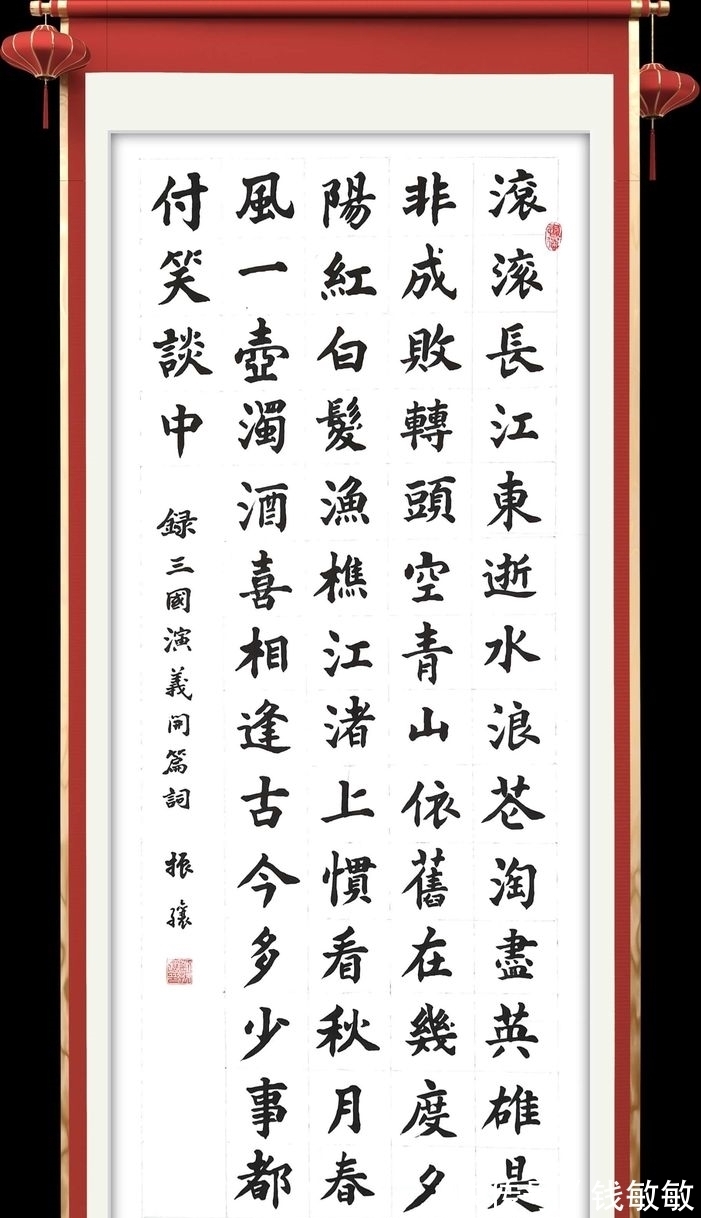 滾滾長江東逝水浪花淘盡英雄是
非成敗轉頭空青山依舊在幾度夕
陽紅白髮漁樵江渚上慣看秋月春
風一壺濁酒喜相逢古今多少事都
付笑談中
録三國演義開篇詞 振
钱敏敏